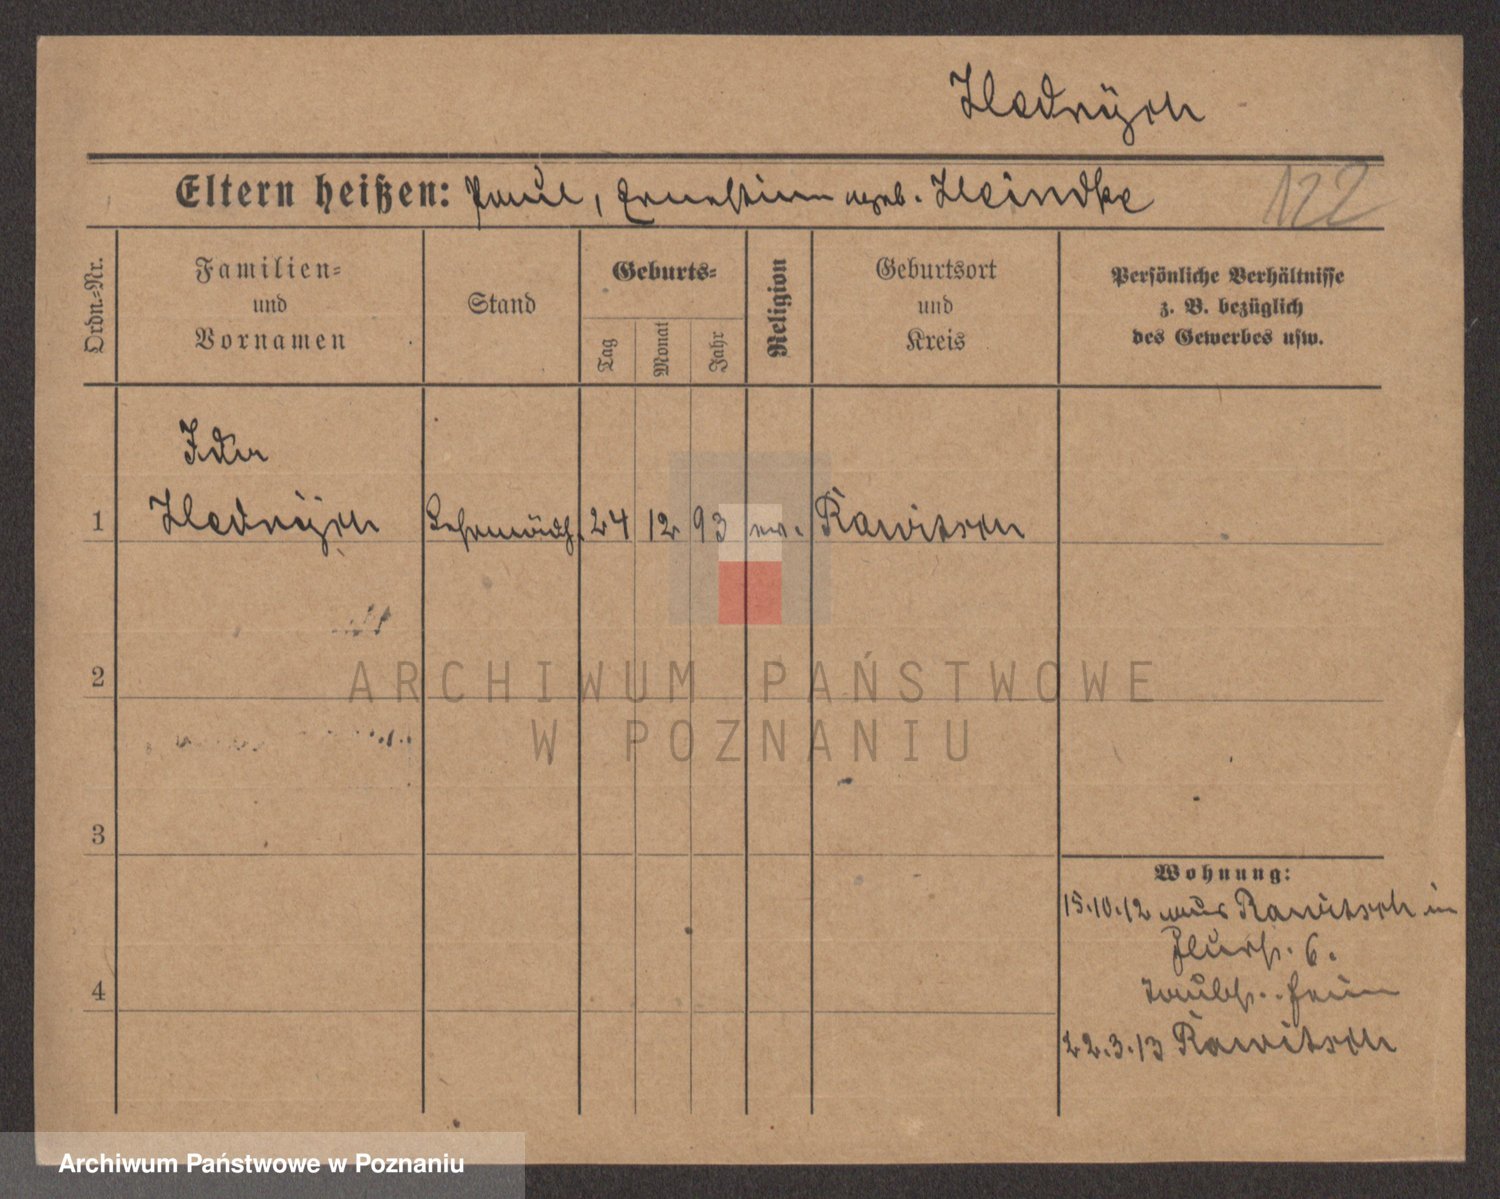 122
Eltern heißen: Paul, Ernestine geb. Heindke
Ordn.-Nr.
Familien-
und
Vornamen
Stand
Geburts-
Tag
Monat
Jahr
Religion
Geburtsort
und
Kreis
Persönliche Verhältnisse
z. B. bezüglich
des Gewerbes usw.
Ida
1
24 12 93 ev. Rawitsch
2
ARCHIWUM PAŃSTWOWE
W POZNANIU
3
Wohnung:
15.10.12 aus Rawitsch in
6.
4
22.3.13 Rawitsch
Archiwum Państwowe w Poznaniu